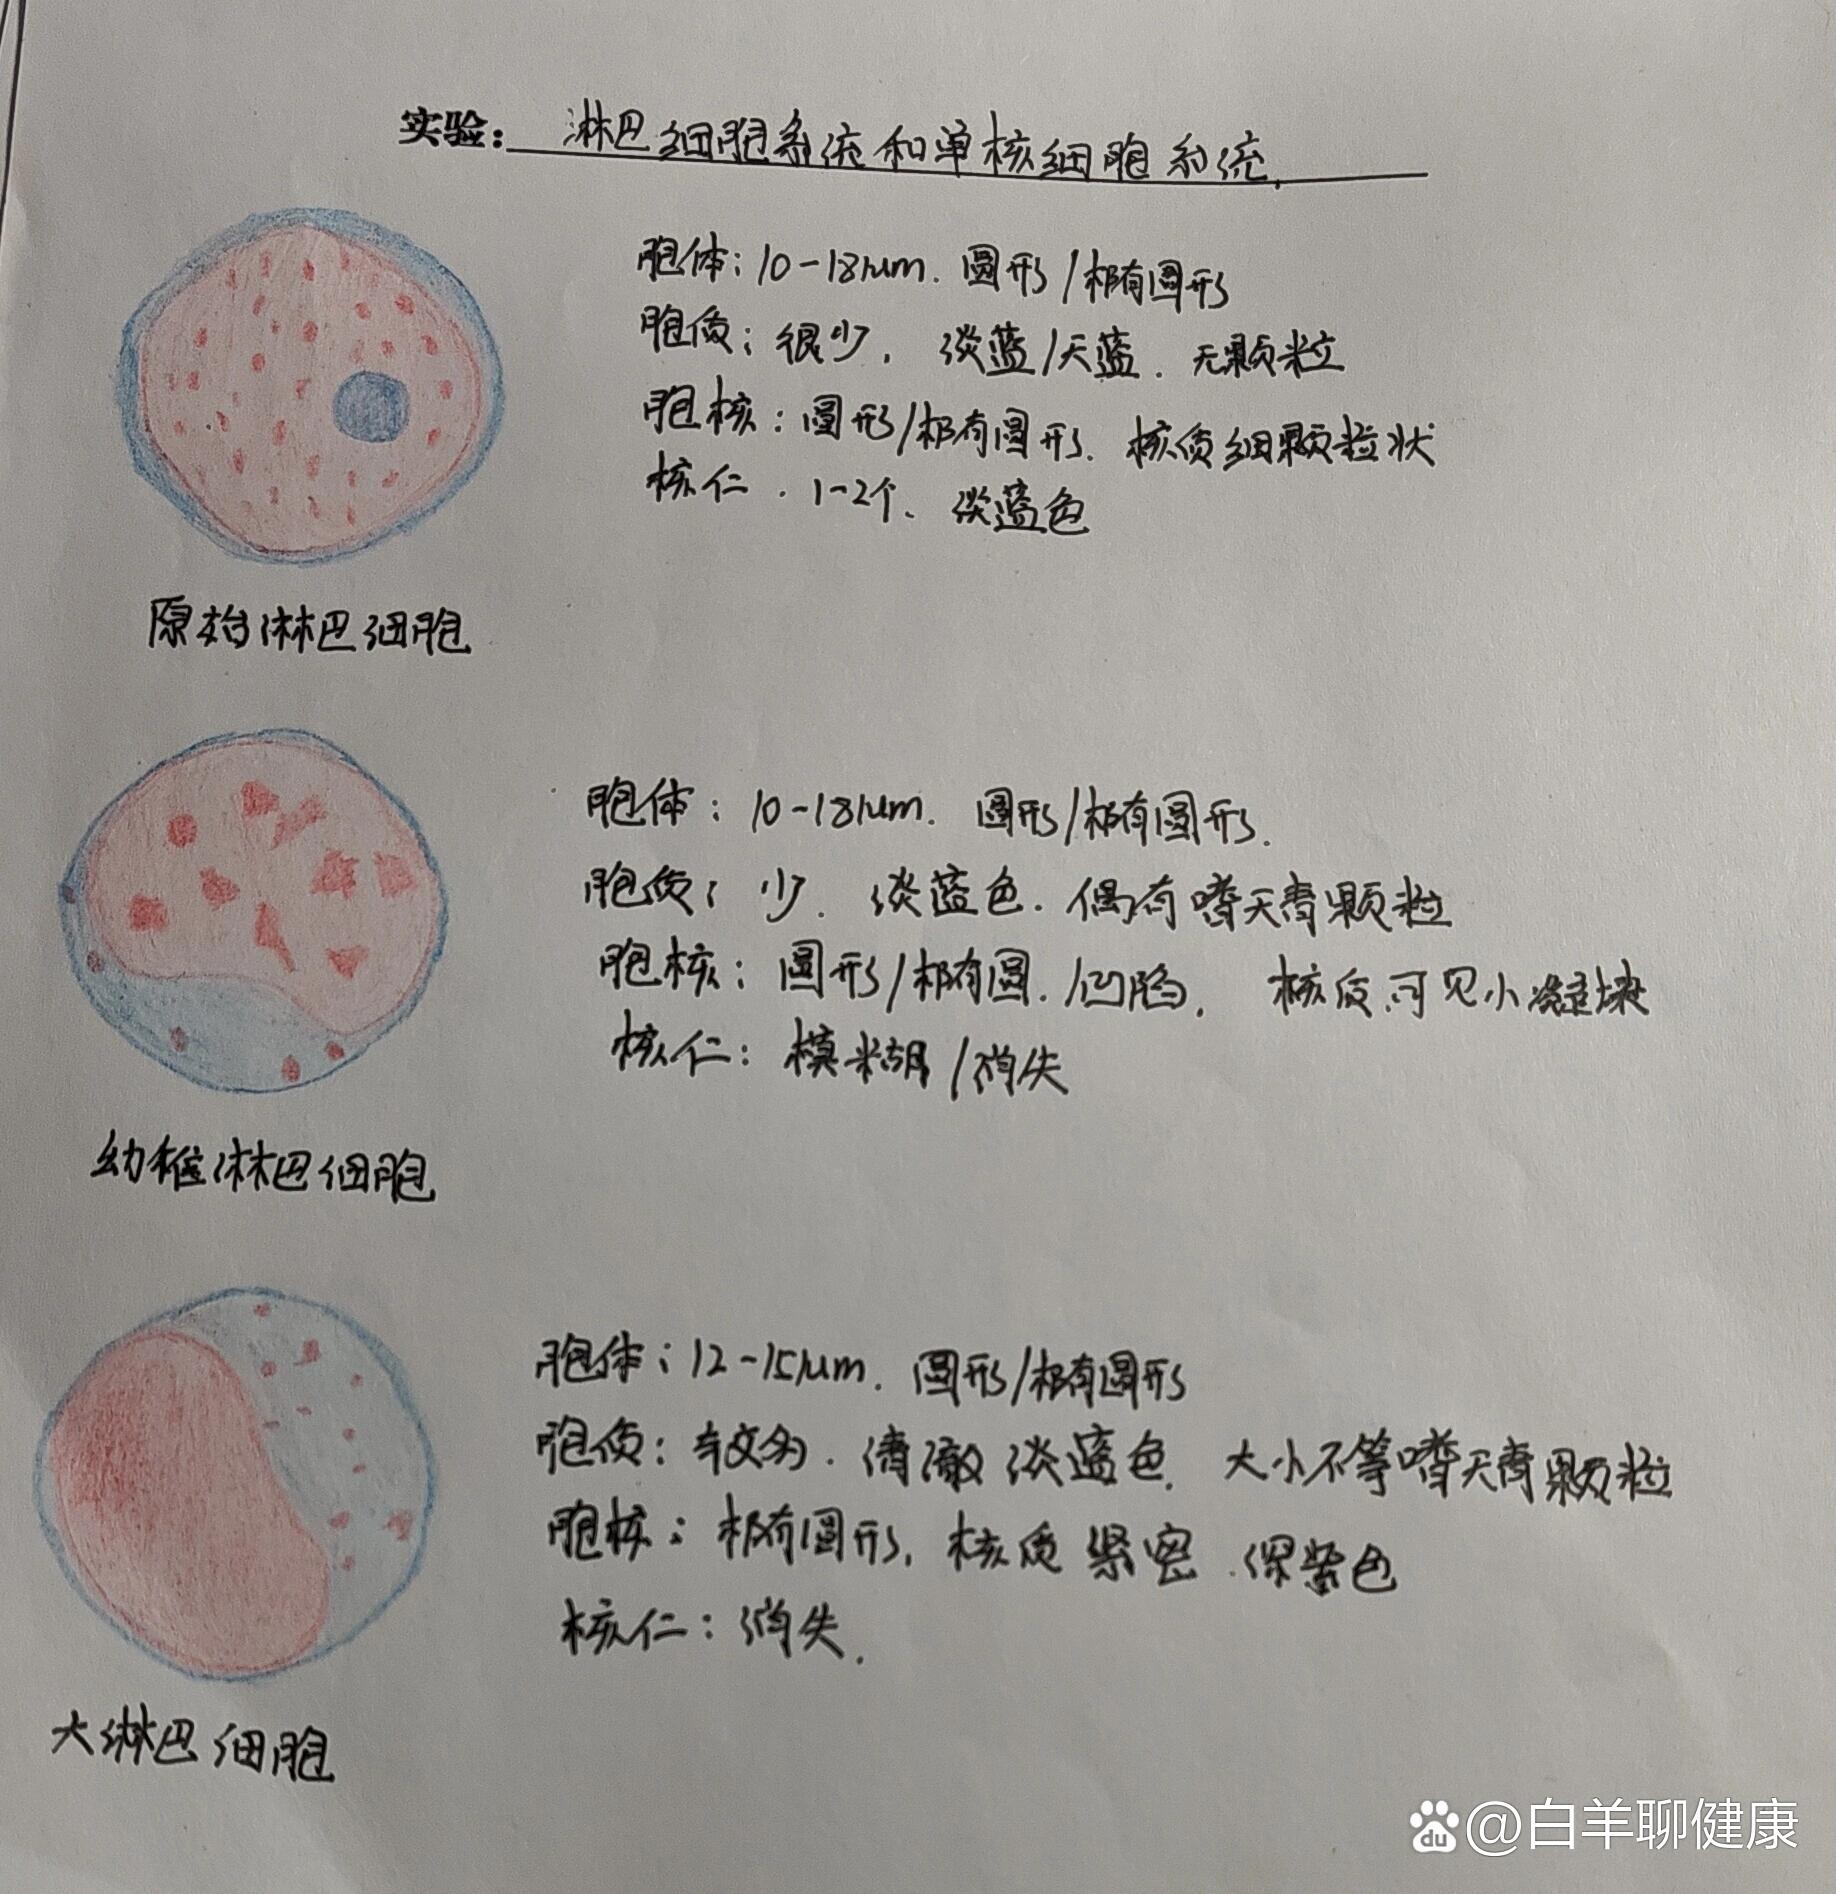 实验：淋巴细胞系统和单核细胞系统.
胞体：10-18μm. 圆形/椭圆形
胞质：很少. 淡蓝/天蓝. 无颗粒
胞核：圆形/椭圆形. 核质细颗粒状
核仁. 1-2个. 淡蓝色
原始淋巴细胞
胞体：10-18μm. 圆形/椭圆形.
胞质：少. 淡蓝色. 偶有嗜天青颗粒
胞核：圆形/椭圆. /凹陷. 核质可见小凝块
核仁：模糊/消失
幼稚淋巴细胞
胞体：12-15μm. 圆形/椭圆形
胞质：较多. 清澈淡蓝色. 大小不等嗜天青颗粒
胞核：椭圆形. 核质紧密. 深紫色
核仁：消失.
大淋巴细胞
du @白羊聊健康